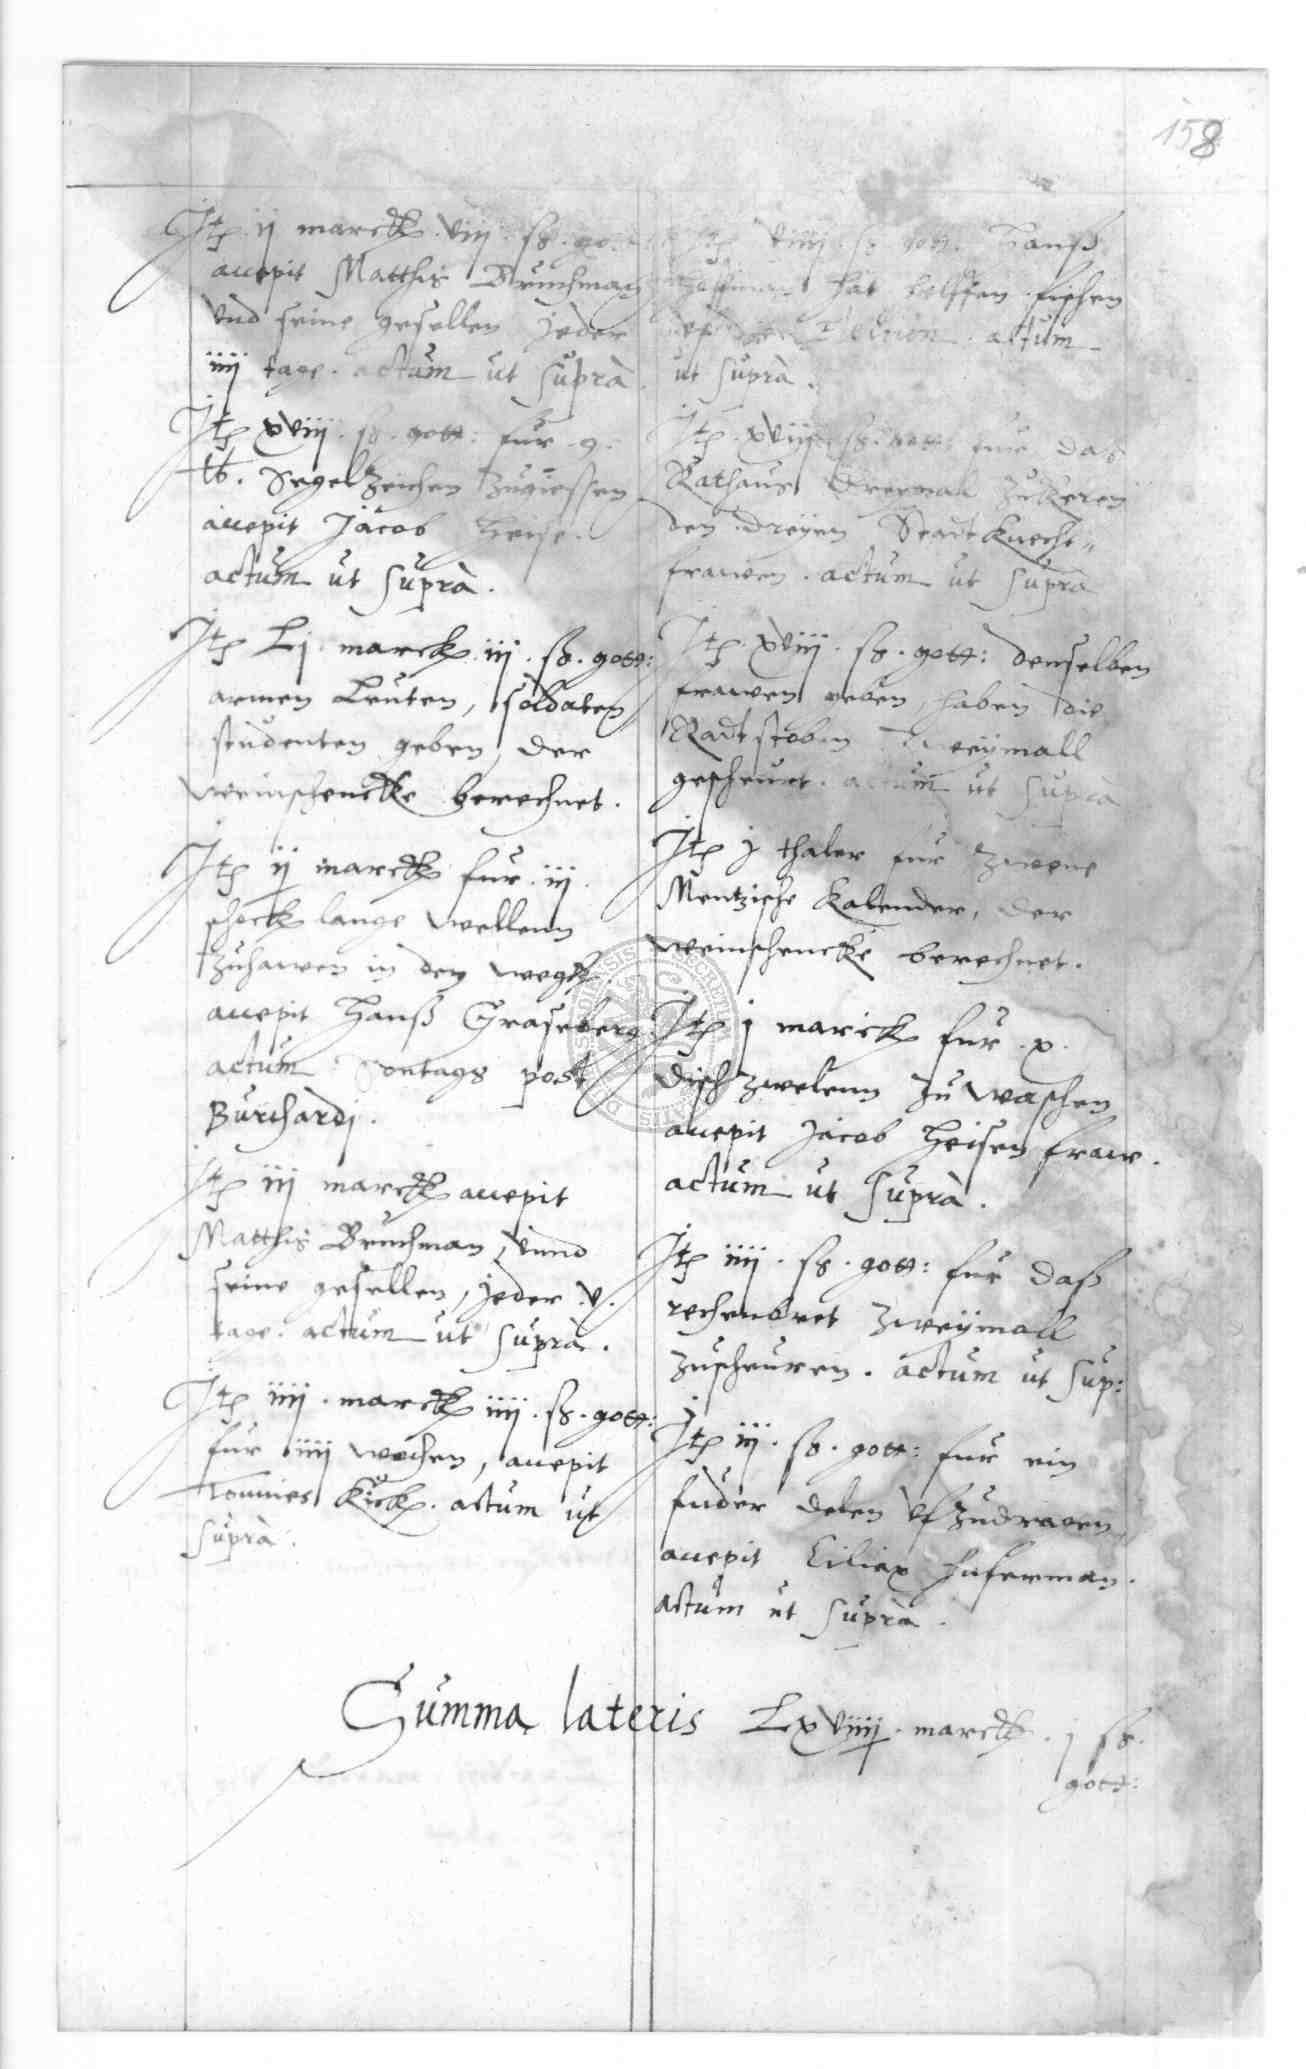 158
Itm ij marck viij ß go
accepit Matthis Bruchman
vnd seine gesellen jeder
iiij tage. actum ut suprà.
Itm xviij ß gott: fur 9
lb. Segelzeichen Zugiessen
accepit Jacob Heise.
actum ut suprà.
Itm Lj marck iij ß gott:
armen Leuten, soldaten
studenten geben, der
weinschencke berechnet.
Itm ij marck fur iij
schock lange wellenn
Zuhawen in den wegk
accepit Hanß Graseberg
actum Sontags post
Burchardj.
Itm iij marck accepit
Matthis Bruchman, vnnd
seine gesellen, jeder v.
tage. actum ut suprà.
Itm iiij marck iiij ß gott:
fur iiij wochen, accepit
Tonnies Kück. actum ut
suprà.
Itm viiij ß gott. Hanß
Hoffman hat helffen fischen
actum
ut suprà.
Itm xviij ß gott: fur daß
Rathaus dreymal Zukeren
den dreyen Stadtknecht=
frawen. actum ut suprà
Itm xviij ß gott: denselben
frawen geben, haben die
Radtstoben Zweymall
gescheuret. actum ut suprà
Itm j thaler fur Zwene
Mentzische Kalender, der
weinschencke berechnet.
Itm j marck fur x
disch Zwelenn Zu waschen
accepit Jacob Heisen fraw.
actum ut suprà.
Itm iiij ß gott: fur daß
rechenbret Zweymall
Zuscheuren. actum ut sup:
Itm iij ß gott: fur ein
fuder delen vfZudragen
accepit Ciliax Huferman.
actum ut suprà.
Summa lateris Lxviiij marck j ß
gott: